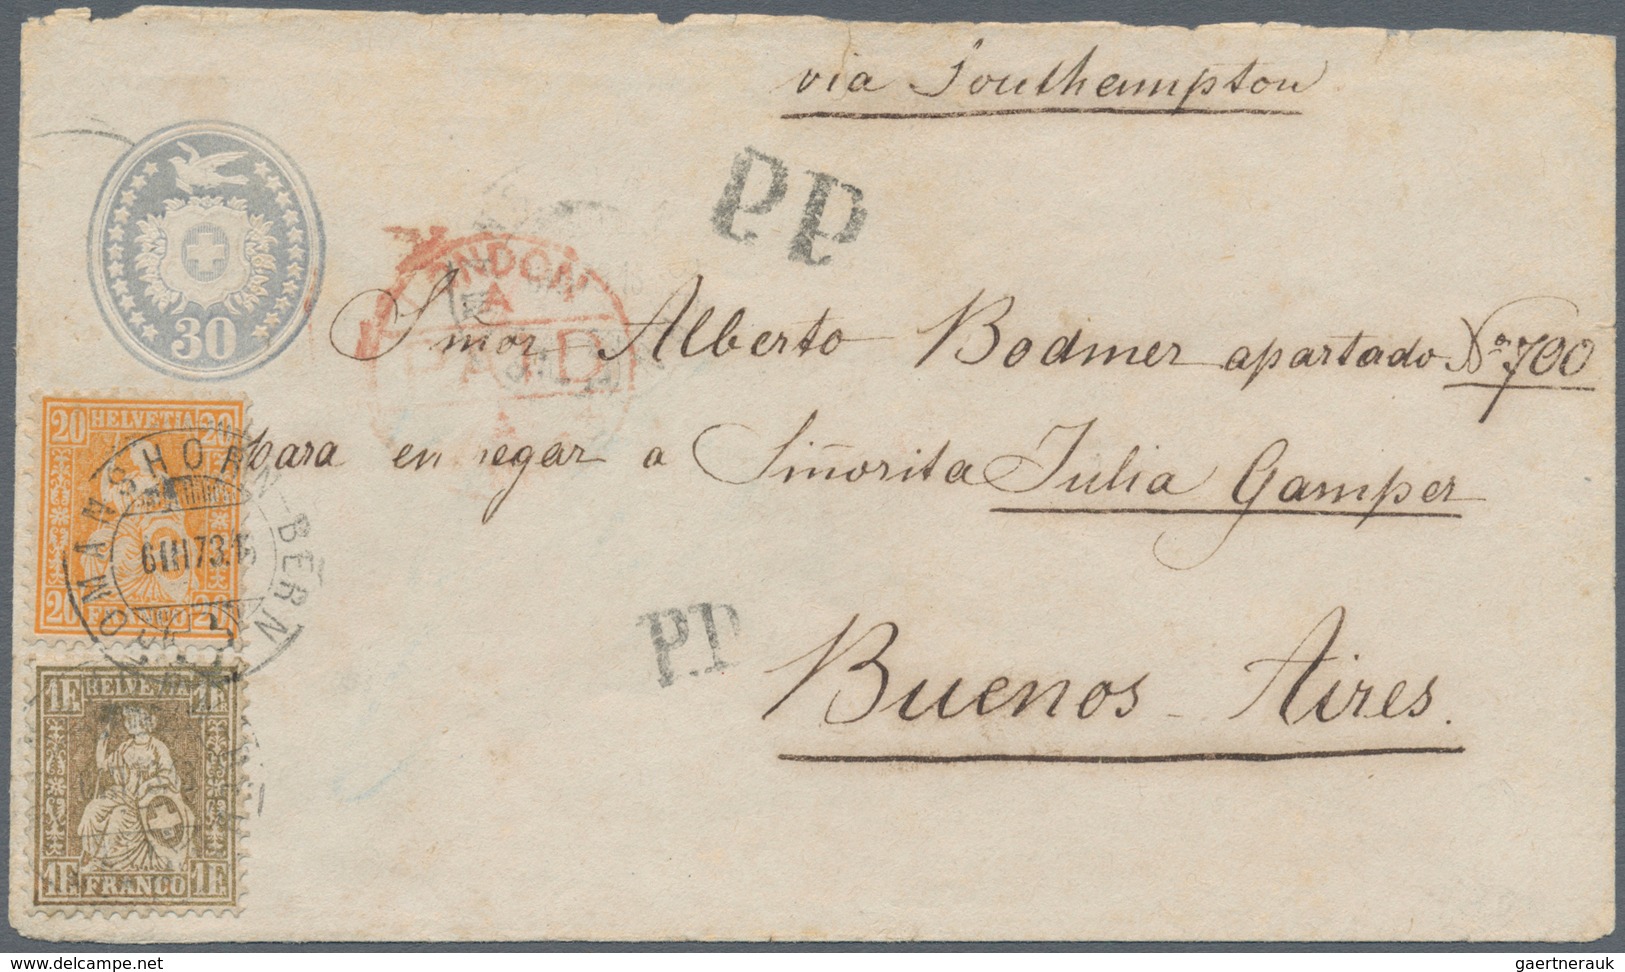 via Southampton
30
PP
LONDON
A
PAID
Sñor Alberto Bodmer apartado Nro 700
para en egar a Siñorita Julia Gamper
20 HELVETIA 20
ROMANSHORN-BERN
6 III 73
20 FRANCO 20
P.P.
Buenos-Aires.
1F HELVETIA 1F
1F FRANCO 1F
www.delcampe.net
gaertnerauk